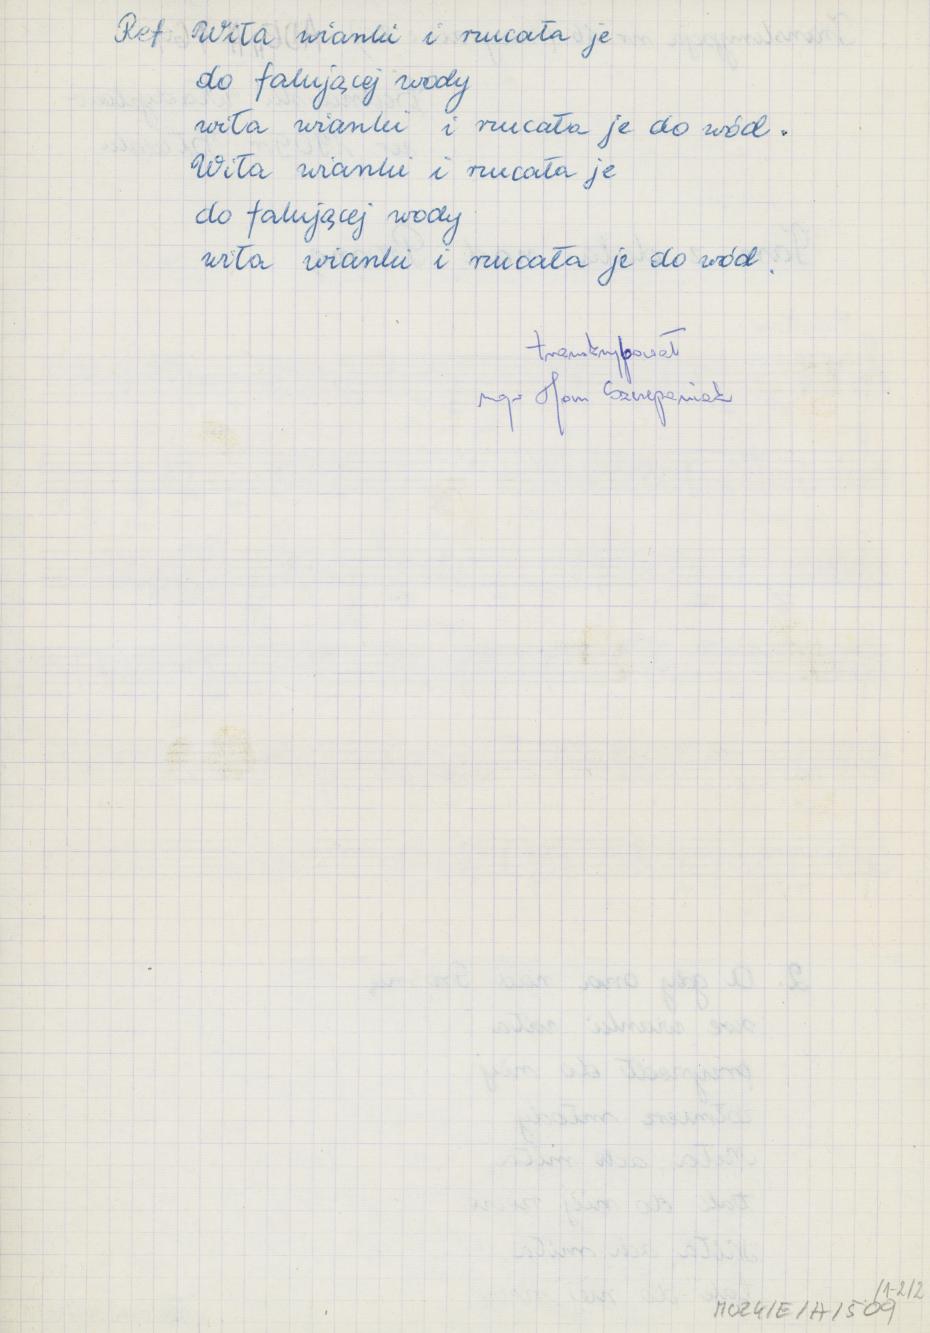 Ref Wiła wianki i rzucała je
do falującej wody
wiła wianki i rzucała je do wód.
Wiła wianki i rzucała je
do falującej wody
wiła wianki i rzucała je do wód.
transkrybował
mgr Szczepaniak
/1-2/2
MOZK/E/A/509